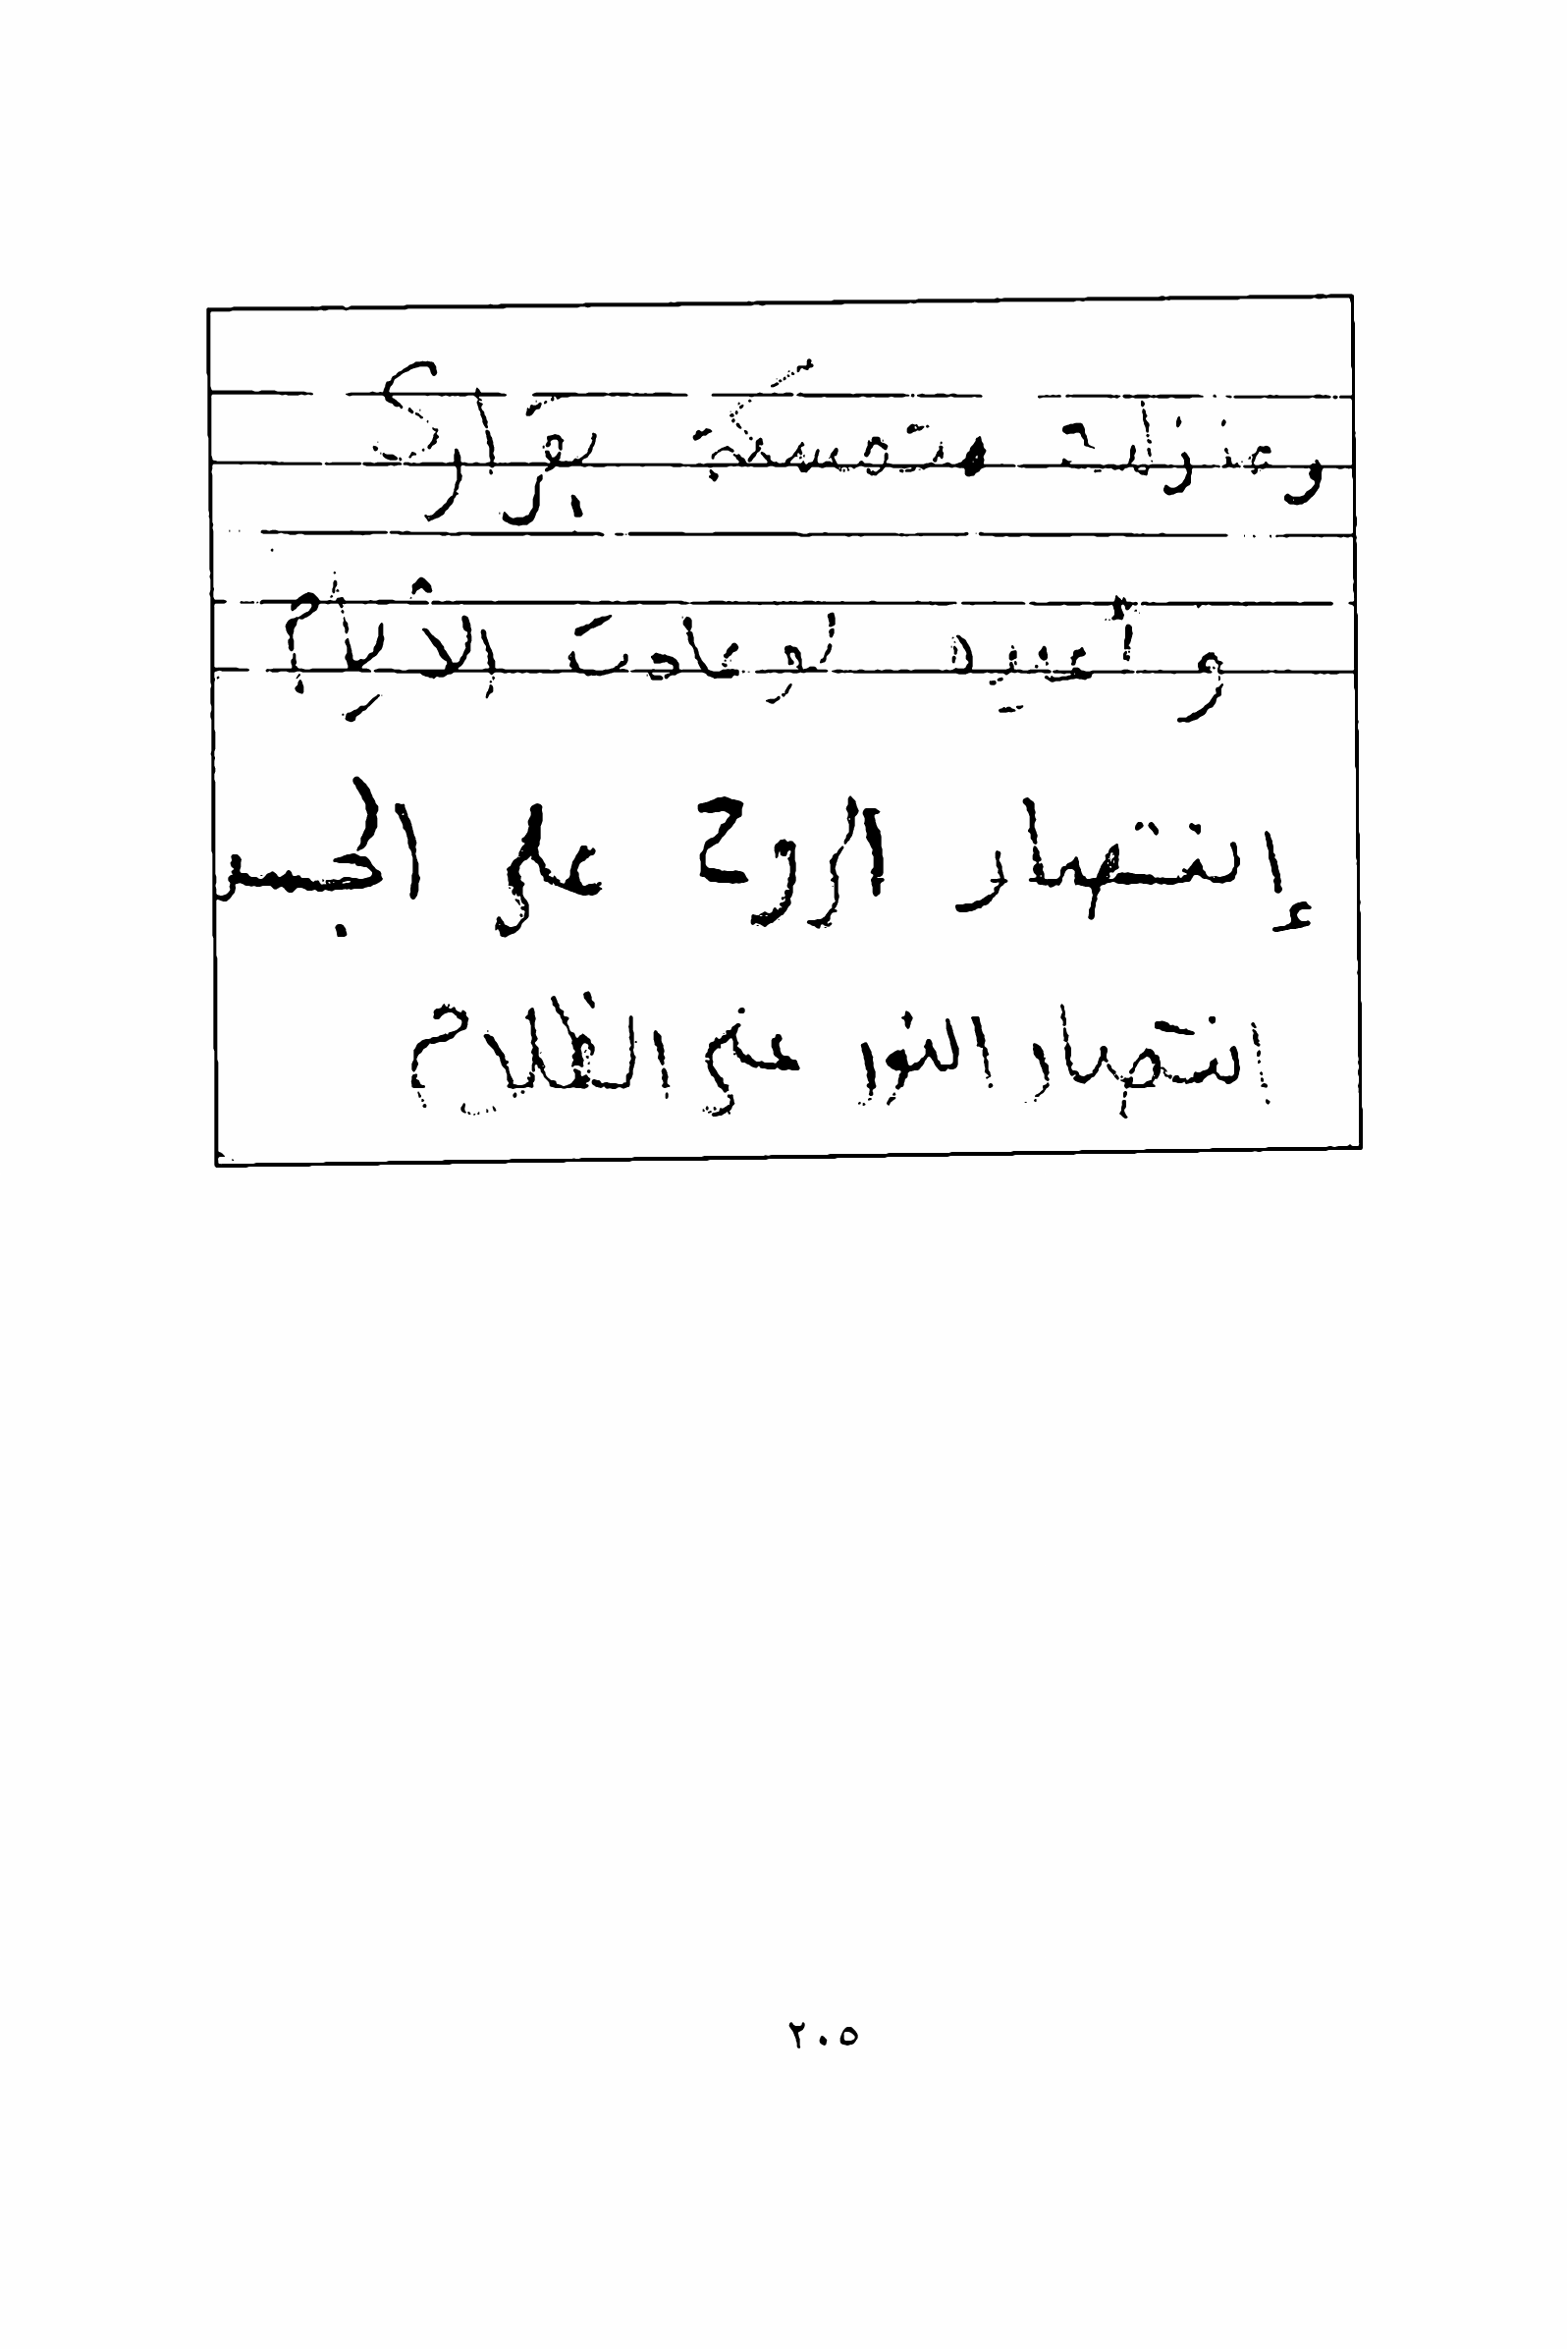 ومنزلك متمسكة بقرارك
و أعييه لو عادت الأيام
إنتصار الروح على الجسر
انتصار النور على الظلام
٢٠٥